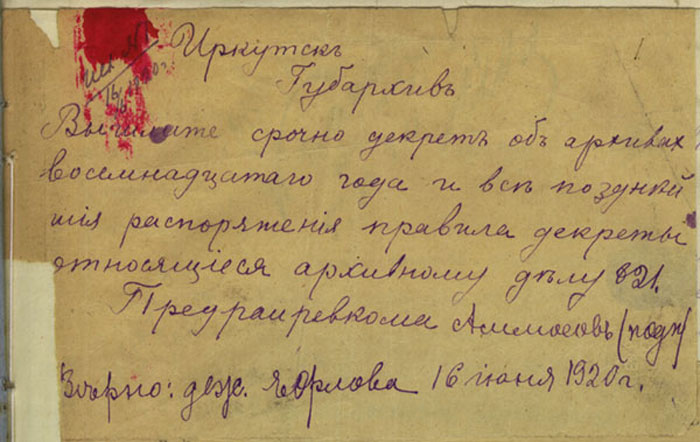 Иркутскъ
Губархивъ
Вышлите срочно декретъ объ архивах
восемнадцатаго года и всѣ позднѣй
шія распоряженія правила декреты
относящіеся архивному дѣлу 821.
Предраиревкома Аммосовъ (подп)
Вѣрно: деж. Орлова 16 июня 1920 г.